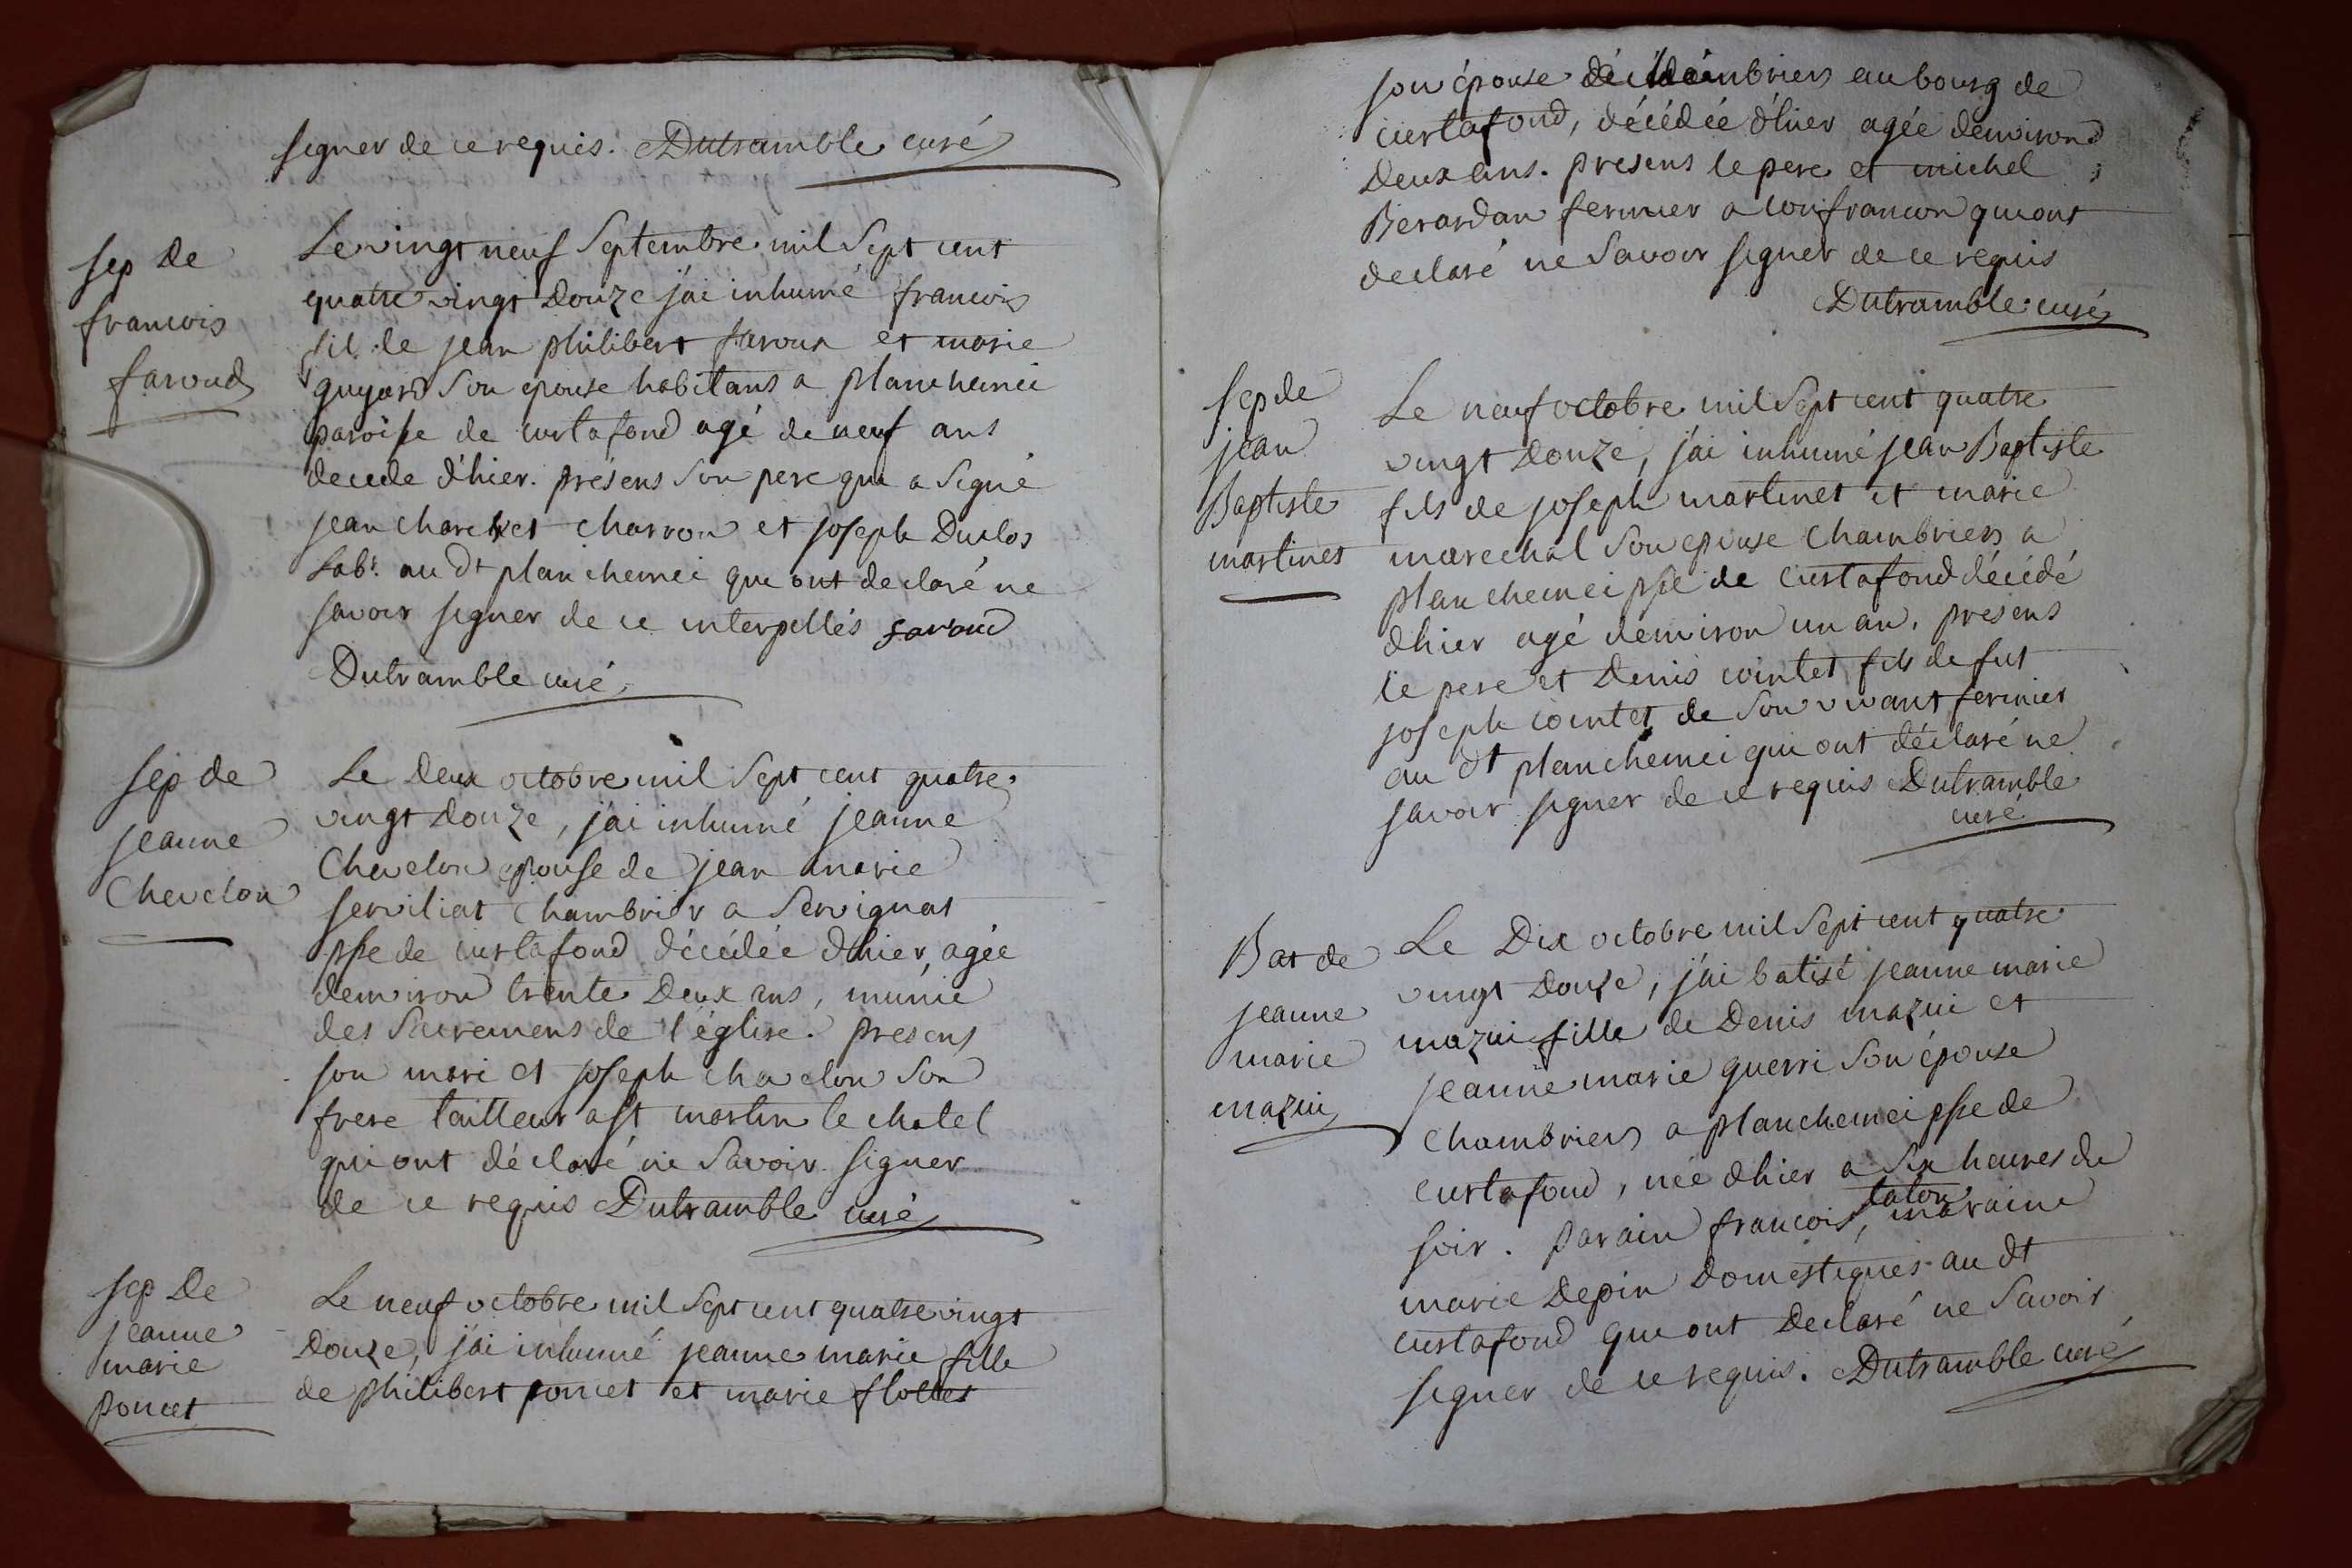 signer de ce requis. Dutramble curé
sep de
francois
faroud
Le vingt neuf septembre mil sept cent
quatre vingt douze j'ai inhumé francois
fil de jean philibert faroux et marie
guyard son epouse habitans a planchemei
paroisse de curtafond agé de neuf ans
decede d'hier. présens son pere qui a signé
jean charchet charron et joseph Duclos
labr. au dt planchemei qui ont declaré ne
savoir signer de ce interpellés faroud
Dutramble curé
sep de
jeanne
Chevelon
Le deux octobre mil sept cent quatre
vingt douze, j'ai inhumé jeanne
Chevelon epouse de jean marie
serviliat chambrier a servignat
psse de curtafond décédée d'hier, agée
denviron trente deux ans, munie
des sacremens de l'église. presens
son mari et joseph chevelon son
frere tailleur a st martin le chatel
qui ont déclaré ne savoir signer
de ce requis Dutramble curé
sep De
jeanne
marie
poncet
Le neuf octobre mil sept cent quatre vingt
douze, j'ai inhumé jeanne marie fille
de philibert poncet et marie flottet
son épouse chambriers au bourg de
curtafond, décédée d'hier agée denviron
deux ans. presens le pere et michel
Berardan fermier a confrancon qui ont
declaré ne savoir signer de ce requis
Dutramble curé
sep de
jean
Baptiste
martinet
Le neuf octobre mil sept cent quatre
vingt douze, j'ai inhumé jean Baptiste
fils de joseph martinet et marie
marechal son epouse chambriers a
planchemei psse de curtafond décédé
d'hier agé denviron un an. presens
le pere et Denis cointet fils de fut
joseph cointet de son vivant fermier
au dt planchemei qui ont déclaré ne
savoir signer de ce requis Dutramble
curé
Bat de
jeanne
marie
mazui
Le Dix octobre mil sept cent quatre
vingt douze, j'ai batisé jeanne marie
mazui fille de Denis mazui et
jeanne marie guerri son épouse
chambriers a planchemei psse de
curtafond, née d'hier a six heures du
soir. parain francois talon, maraine
marie Depin domestiques au dt
curtafond qui ont declaré ne savoir
signer de ce requis. Dutramble curé